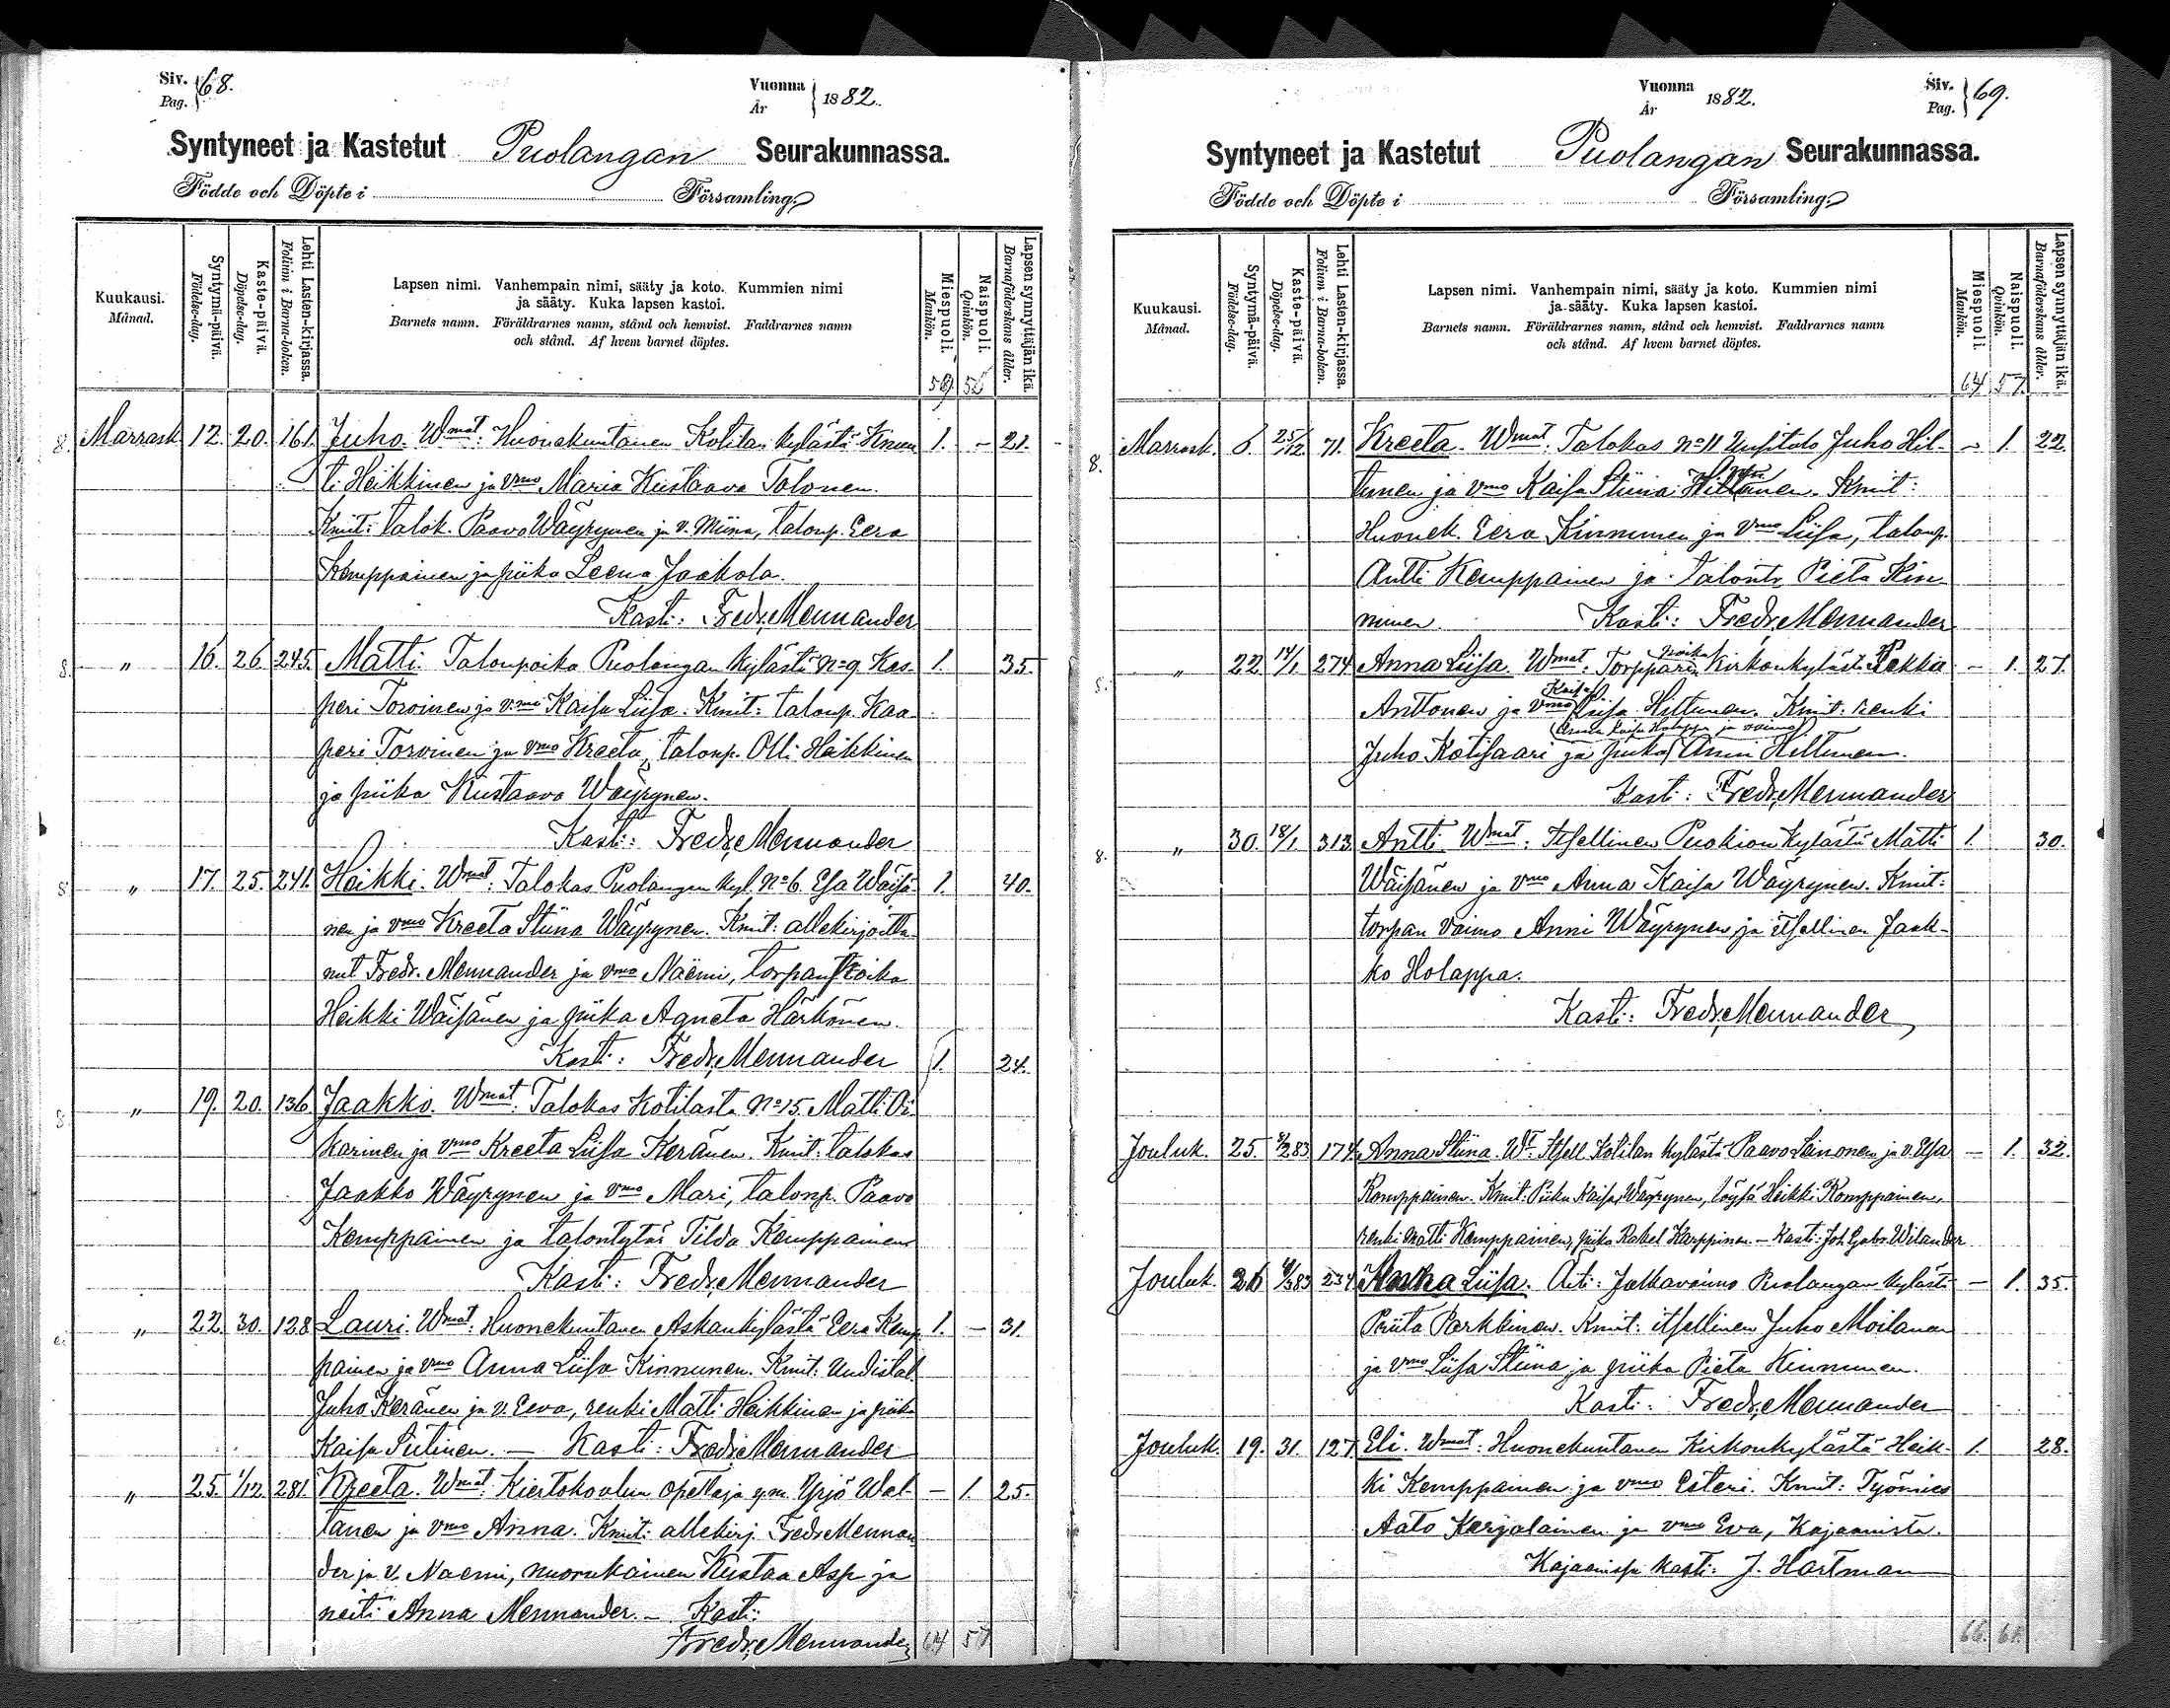 Siv. 68.
Pag.
Vuonna 1882.
År
Syntyneet ja Kastetut Puolangan Seurakunnassa.
Födde och Döpte i Församling.
Kuukausi.
Månad.
Syntymä-päivä.
Födelse-dag.
Kaste-päivä.
Döpelse-dag.
Lehti Lasten-kirjassa.
Folium i Barna-boken.
Lapsen nimi. Vanhempain nimi, sääty ja koto. Kummien nimi
ja sääty. Kuka lapsen kastoi.
Barnets namn. Föräldrarnes namn, stånd och hemvist. Faddrarnes namn
och stånd. Af hvem barnet döptes.
Miespuoli.
Mankön.
Naispuoli.
Qvinkön.
Lapsen synnyttäjän ikä.
Barnaföderskans ålder.
59. 56
8. Marrask. 12. 20. 161. Juho. Wmat: Huonekuntanen Kotilan kylästä Knuu 1. - 21.
ti Heikkinen ja vmo Maria Kustaava Tolonen.
Kmit: talok. Paavo Wäyrynen ja v. Miina, talonp. Eera
Kemppainen ja piika Leena Jaakola.
Kasti: Fredr. Mennander
8. " 16. 26. 245. Matti. Talonpoika Puolangan kylästä No 9. Kas- 1. 35.
peri Torvinen ja vmo Kaisa Liisa. Kmit: talonp. Kaa-
peri Torvinen ja vmo Kreeta, talonp. Olli Heikkinen
ja piika Kustaava Wäyrynen.
Kasti: Fredr. Mennander
8 " 17. 25. 241. Heikki. Wmat: Talokas Puolangan kyl. No 6. Esa Wäisä- 1. 40.
nen ja vmo Kreeta Stiina Wäyrynen. Kmit: allekirjoitta-
nut Fredr. Mennander ja vmo Naëmi, torpanpoika
Heikki Wäisänen ja piika Agneta Härkönen.
Kast: Fredr. Mennander 1. 24.
8 " 19. 20. 136. Jaakko. Wmat: Talokas Kotilasta No 15. Matti Oi-
karinen ja vmo Kreeta Liisa Keränen. Kmit: talokas
Jaakko Wäyrynen ja vmo Mari, talonp. Paavo
Kemppainen ja talontytär Tilda Kemppainen
Kasti: Fredr. Mennander
" 22. 30. 128. Lauri. Wmat: Huonekuntanen Askankylästä Eera Kemp- 1. - 31.
painen ja vmo Anna Liisa Kinnunen. Kmit: Uudistal.
Juho Keränen ja v. Eeva, renki Matti Heikkinen ja piika
Kaisa Siitinen. — Kasti: Fredr. Mennander
" 25. 1/12. 281. Kreeta. Wmat: Kiertokoulun opettaja ym. Yrjö Wal- - 1. 25.
tanen ja vmo Anna. Kmit: allekirj. Fredr. Mennan
der ja v. Naemi, nuorukainen Kustaa Asp ja
neiti Anna Mennander. - Kasti:
Fredr. Mennander 64 57
Vuonna 1882.
År
Siv. 69.
Pag.
Syntyneet ja Kastetut Puolangan Seurakunnassa.
Födde och Döpte i Församling.
Kuukausi.
Månad.
Syntymä-päivä.
Födelse-dag.
Kaste-päivä.
Döpelse-dag.
Lehti Lasten-kirjassa.
Folium i Barna-boken.
Lapsen nimi. Vanhempain nimi, sääty ja koto. Kummien nimi
ja sääty. Kuka lapsen kastoi.
Barnets namn. Föräldrarnes namn, stånd och hemvist. Faddrarnes namn
och stånd. Af hvem barnet döptes.
Miespuoli.
Mankön.
Naispuoli.
Qvinkön.
Lapsen synnyttäjän ikä.
Barnaföderskans ålder.
64 57.
8. Marrask. 6. 25/12. 71. Kreeta. Wmat: Talokas No 11 Uusitalo Juho Hil- - 1. 22.
tunen ja vmo Kaisa Stiina Hiltunen. Kmit:
Huonek. Eera Kinnunen ja vmo Liisa, talonp.
Antti Kemppainen ja talontr Pieta Kin-
nunen. Kasti: Fredr. Mennander
8. " 22. 14/1. 274. Anna Liisa. Wmat: Torppari poika Kirkonkylästä Pekka - 1. 27.
Anttonen ja vmo Kaisa Liisa Hiltunen. Kmit: renki
Juho Kotisaari ja piika Anni Hiltunen.
Kasti: Fredr. Mennander
8. " 30. 18/1. 313. Antti. Wmat: Itsellinen Puokion kylästä Matti 1. 30.
Wäisänen ja vmo Anna Kaisa Wäyrynen. Kmit:
torpan vaimo Anni Wäyrynen ja itsellinen Jaak-
ko Holappa.
Kasti: Fredr. Mennander
Jouluk. 25. 174. Anna Stiina. Wt. Itsell. Kotilan kylästä Paavo Leinonen ja v. Elsa - 1. 32.
Kemppainen. Kmit: Piika Kaisa Wäyrynen, löysä Heikki Kemppainen,
renki Matti Kemppainen, piika Rakel Karppinen. — Kasti: Joh. Gabr. Wilander
Jouluk. 26 234 Anna Liisa. Äiti: Jalkavaimo Puolangan kylästä - 1. 35.
Priita Parkkinen. Kmit: itsellinen Juho Moilanen
ja vmo Liisa Stiina ja piika Pieta Kinnunen.
Kasti: Fredr. Mennander
Jouluk. 19. 31. 127. Eli. Wmat: Huonekuntanen Kirkonkylästä Heik- 1. 28.
ki Kemppainen ja vmo Esteri. Kmit: Työmies
Aato Karjalainen ja vmo Eva, Kajaanista.
Kajaanissa kasti: J. Hartman
66. 61.